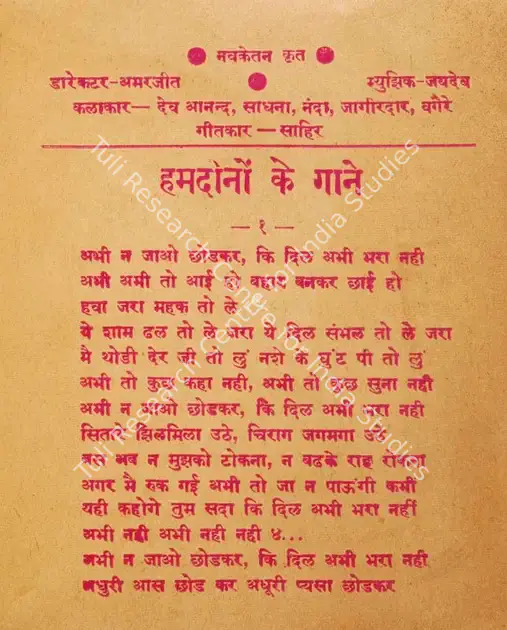 नवकेतन कृत
डारेकटर-अमरजीत म्युझिक-जयदेव
कलाकार— देव आनन्द, साधना, नंदा, जागीरदार, वगैरे
गीतकार — साहिर
हमदांनों के गाने
— १ —
अभी न जाओ छोडकर, कि दिल अभी भरा नही
अभी अभी तो आई हो बहार बनकर छाई हो
हवा जरा महक तो ले
ये शाम ढल तो ले जरा ये दिल संभल तो ले जरा
मै थोडी देर जी तो लुं नशे के घुंट पी तो लुं
अभी तो कुछ कहा नही, अभी तो कुछ सुना नही
अभी न जाओ छोडकर, कि दिल अभी भरा नही
सितारे झिलमिला उठे, चिराग जगमगा उठे
बस अब न मुझको टोकना, न बढके राह रोकना
अगर मै रुक गई अभी तो जा न पाऊंगी कभी
यही कहोगे तुम सदा कि दिल अभी भरा नहीं
अभी नही अभी नही नही ४...
अभी न जाओ छोडकर, कि दिल अभी भरा नही
अधुरी आस छोड कर अधूरी प्यसा छोडकर
Tuli Research Centre for India Studies
Tuli Research Centre for India Studies